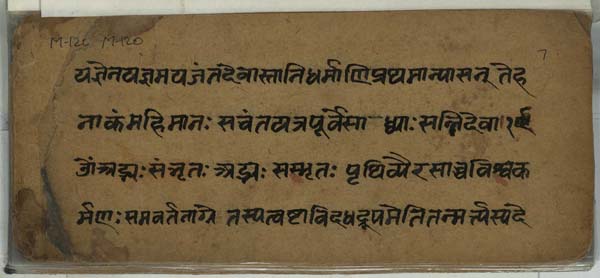 M-120 M-120
7
यज्ञेनयज्ञमयजंतदेवास्तानिधर्माणिप्रथमान्यासन् तेह
नाकंमहिमानः सचंतयत्रपूर्वेसा ध्याः सन्तिदेवा
ओंअद्भ्यः संभृतः अद्भ्यः सम्भृतः पृथिव्यैरसाच्चविश्वक
र्मणः समवर्तताग्रे तस्यत्वष्टाविदधद्रूपमेतितन्मर्त्यस्यदे